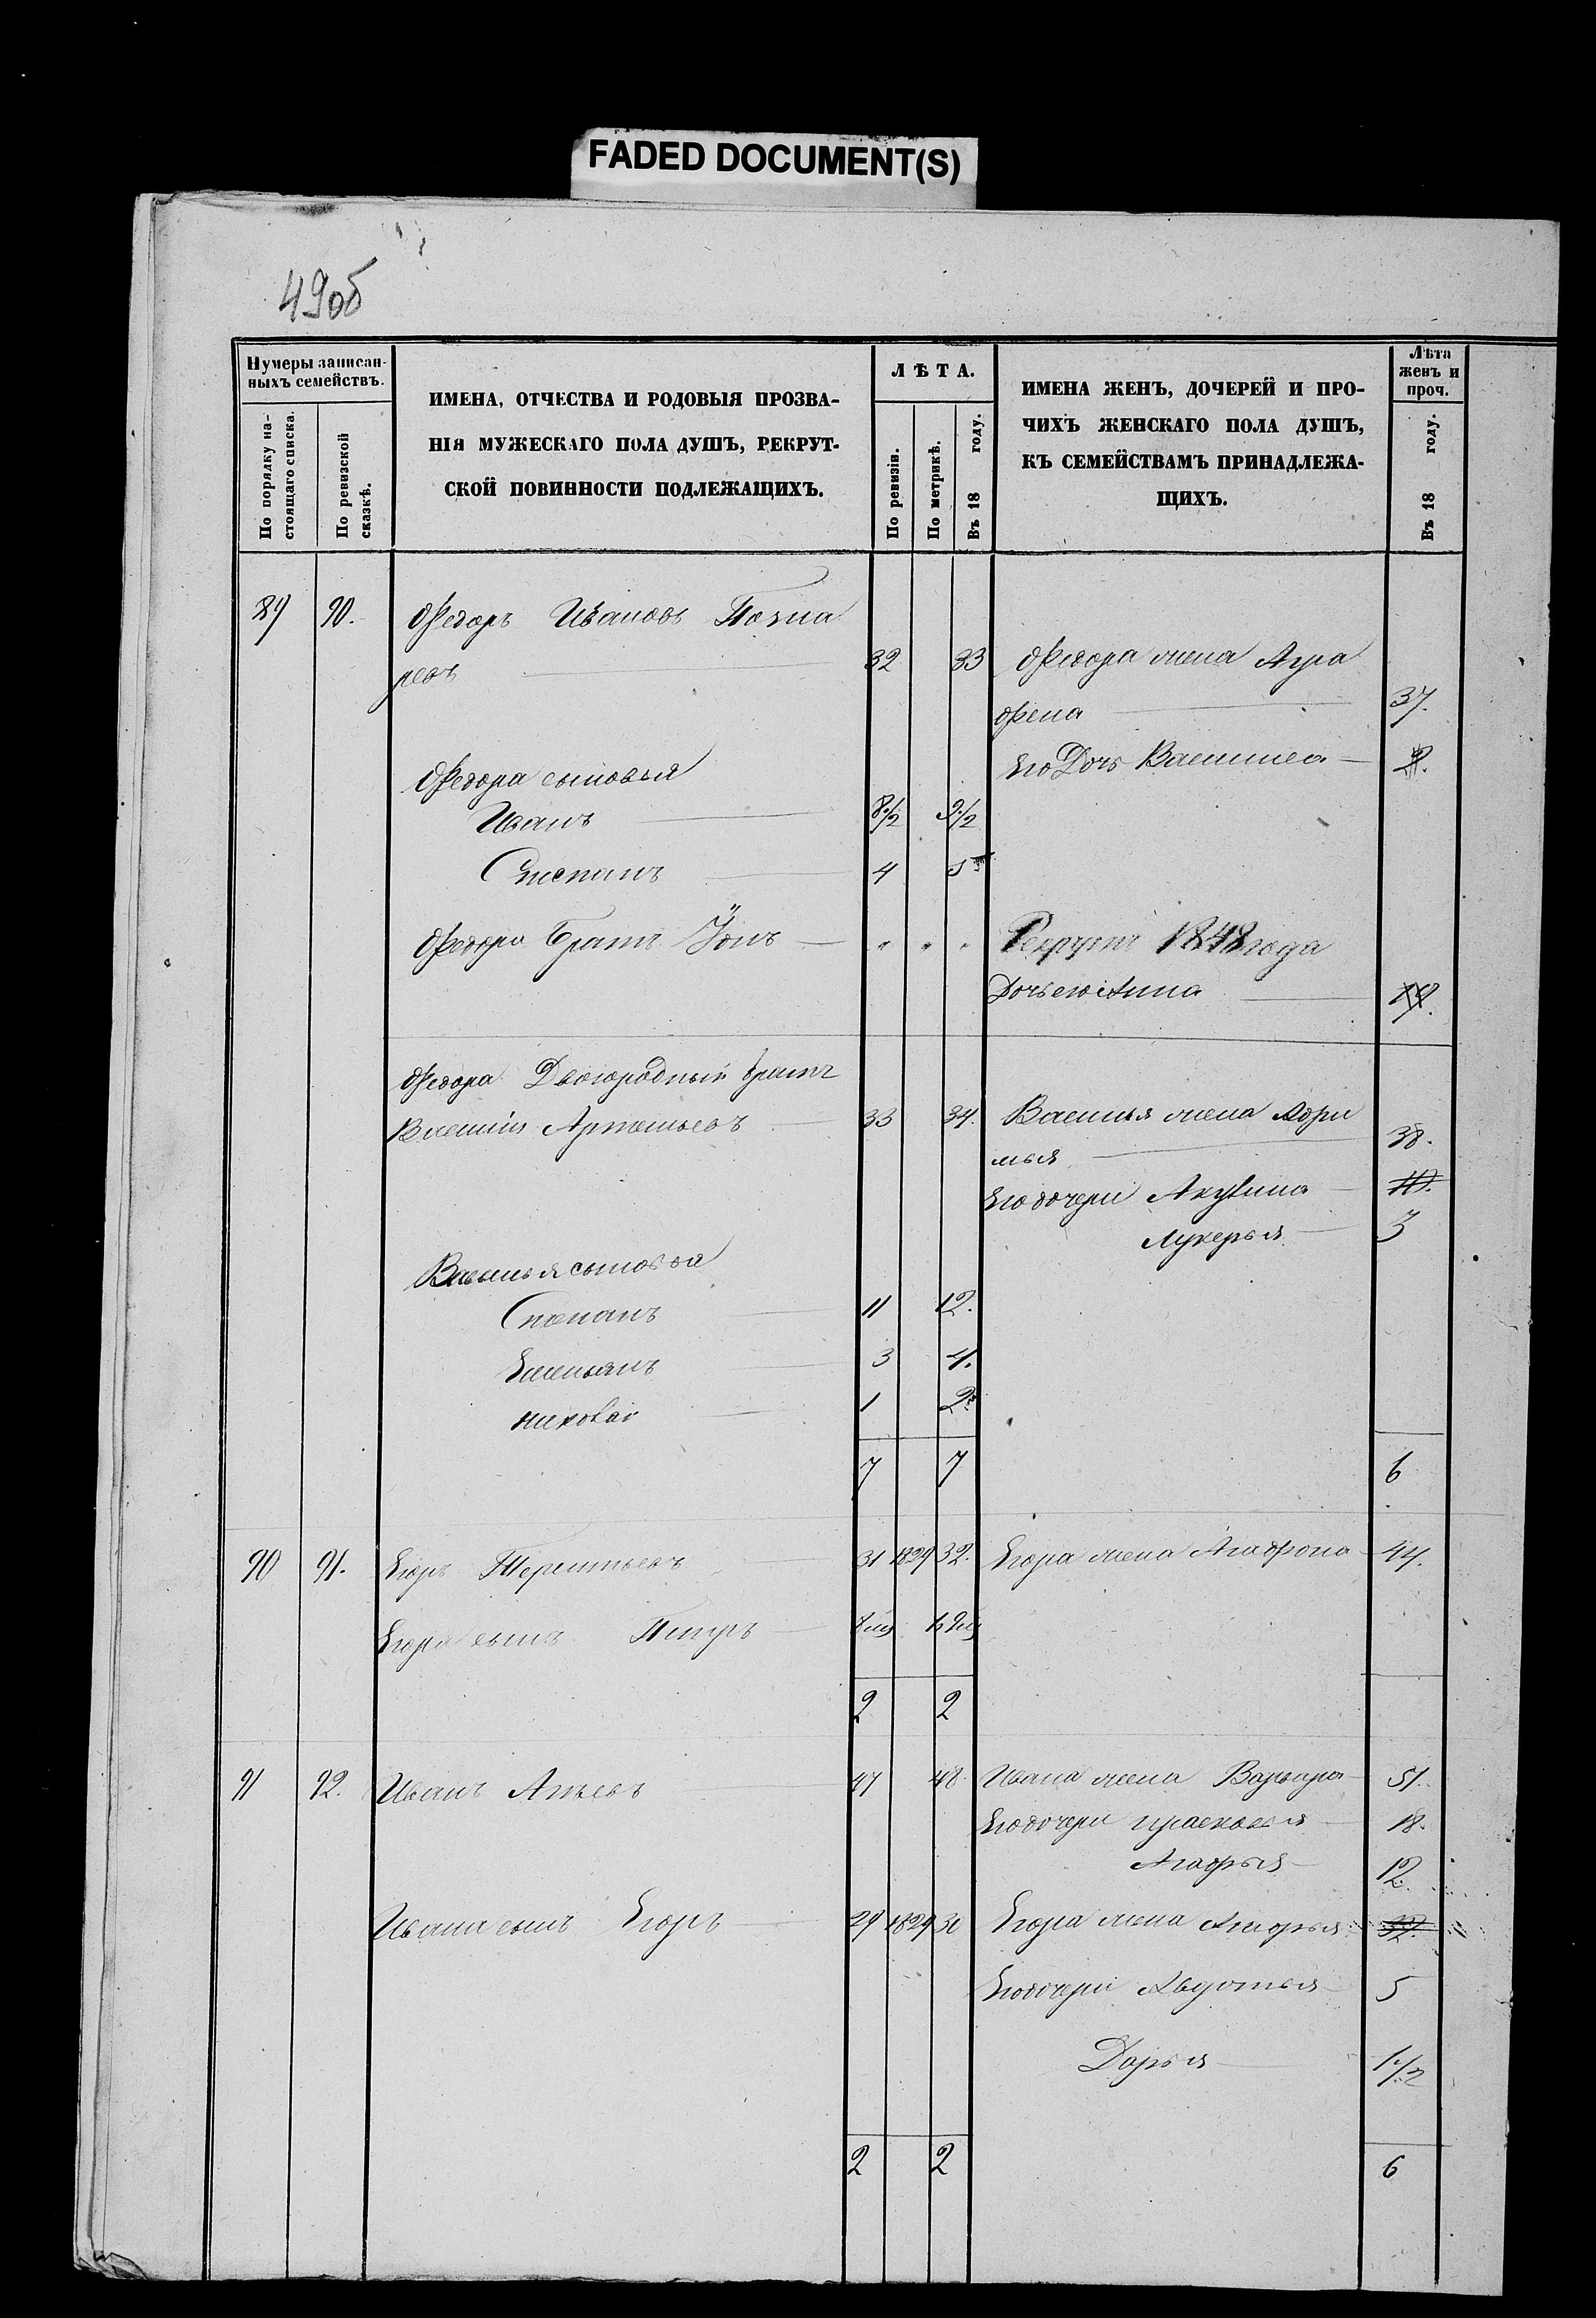 FADED DOCUMENT(S)
49об
Нумеры записан-
ныхъ семействъ.
По порядку на-
стоящаго списка.
По ревизской
сказкѣ.
ИМЕНА, ОТЧЕСТВА И РОДОВЫЯ ПРОЗВА-
НІЯ МУЖЕСКАГО ПОЛА ДУШЪ, РЕКРУТ-
СКОЙ ПОВИННОСТИ ПОДЛЕЖАЩИХЪ.
ЛѢТА.
По ревизіи.
По метрикѣ.
Въ 18 году.
ИМЕНА ЖЕНЪ, ДОЧЕРЕЙ И ПРО-
ЧИХЪ ЖЕНСКАГО ПОЛА ДУШЪ,
КЪ СЕМЕЙСТВАМЪ ПРИНАДЛЕЖА-
ЩИХЪ.
Лѣта
женъ и
проч.
Въ 18 году.
89 90. Федоръ Ивановъ
32 33 Федора жена Агра
фена 37.
Его Дочь Василиса 2.
Федора сыновья
Иванъ 8 1/2 9 1/2
Степанъ 4 5
Федора Братъ " " " Рекрутъ 1848 года
Дочь его Анна
Федора Двоюродный братъ
Василій Артемьевъ 33 34. Василья жена
38.
Его дочери Акулина 10.
Лукерья 3
Василья сыновья
Степанъ 11 12.
Емельянъ 3 4.
Николай 1 2.
7 7 6
90 91. Егоръ Терентьевъ 31 1829 32. Егора жена 44.
Егора сынъ Петръ
2 2
91 92. Иванъ 47 48 Ивана жена Варвара 51.
Его дочери Прасковья 18.
Агафья 12.
Ивана сынъ Егоръ 29 1829 30 Егора жена Агафья 32.
Его дочери Авдотья 5
Дарья 1 1/2
2 2 6